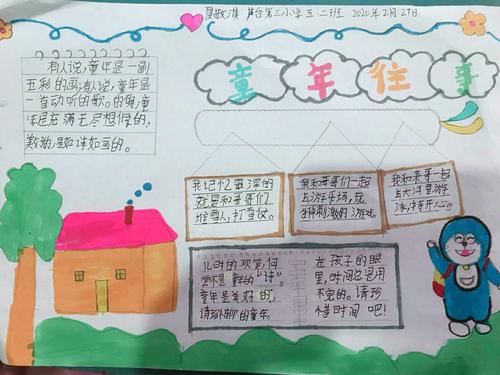 芦台第三小学 五·二班 2020年2月27日
童年往事
有人说，童年是一副
五彩的画；有人说，童年是
一首动听的歌。的确，童
年是充满无尽想像的，
欢动，是如诗如画的。
我记忆最深的
就是和哥哥们
堆雪人，打雪仗。
我和哥哥们一起
去游乐场，玩
各种刺激的游戏。
我和弟哥一起
去大河里游
泳，特开心。
儿时的欢笑，何
尝不是童年的“诗”。
童年是美好的，
请珍惜我们的童年。
在孩子的眼
里，时间总是用
不完的。请珍
惜时间吧！